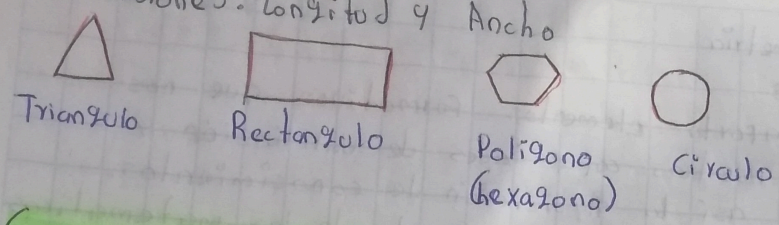 Longitud y Ancho
Triangulo
Rectangulo
Poligono
(hexagono)
Circulo